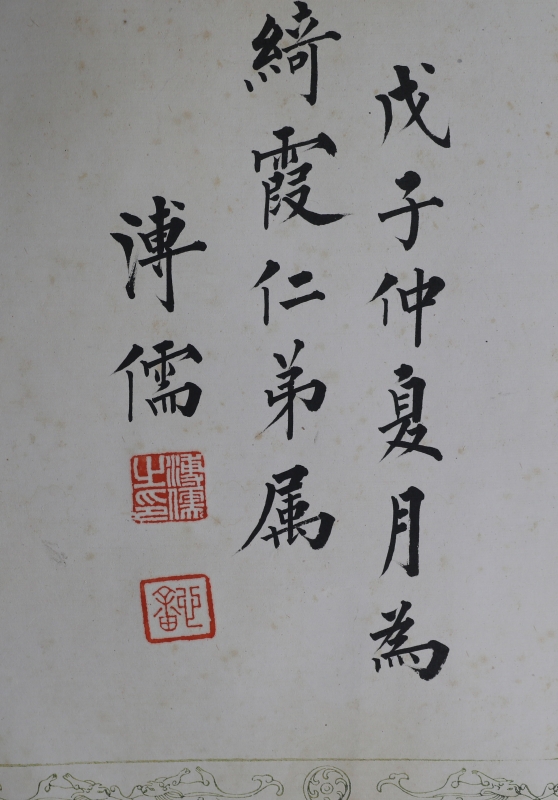 戊子仲夏月為
綺霞仁弟属
溥儒
溥儒之印